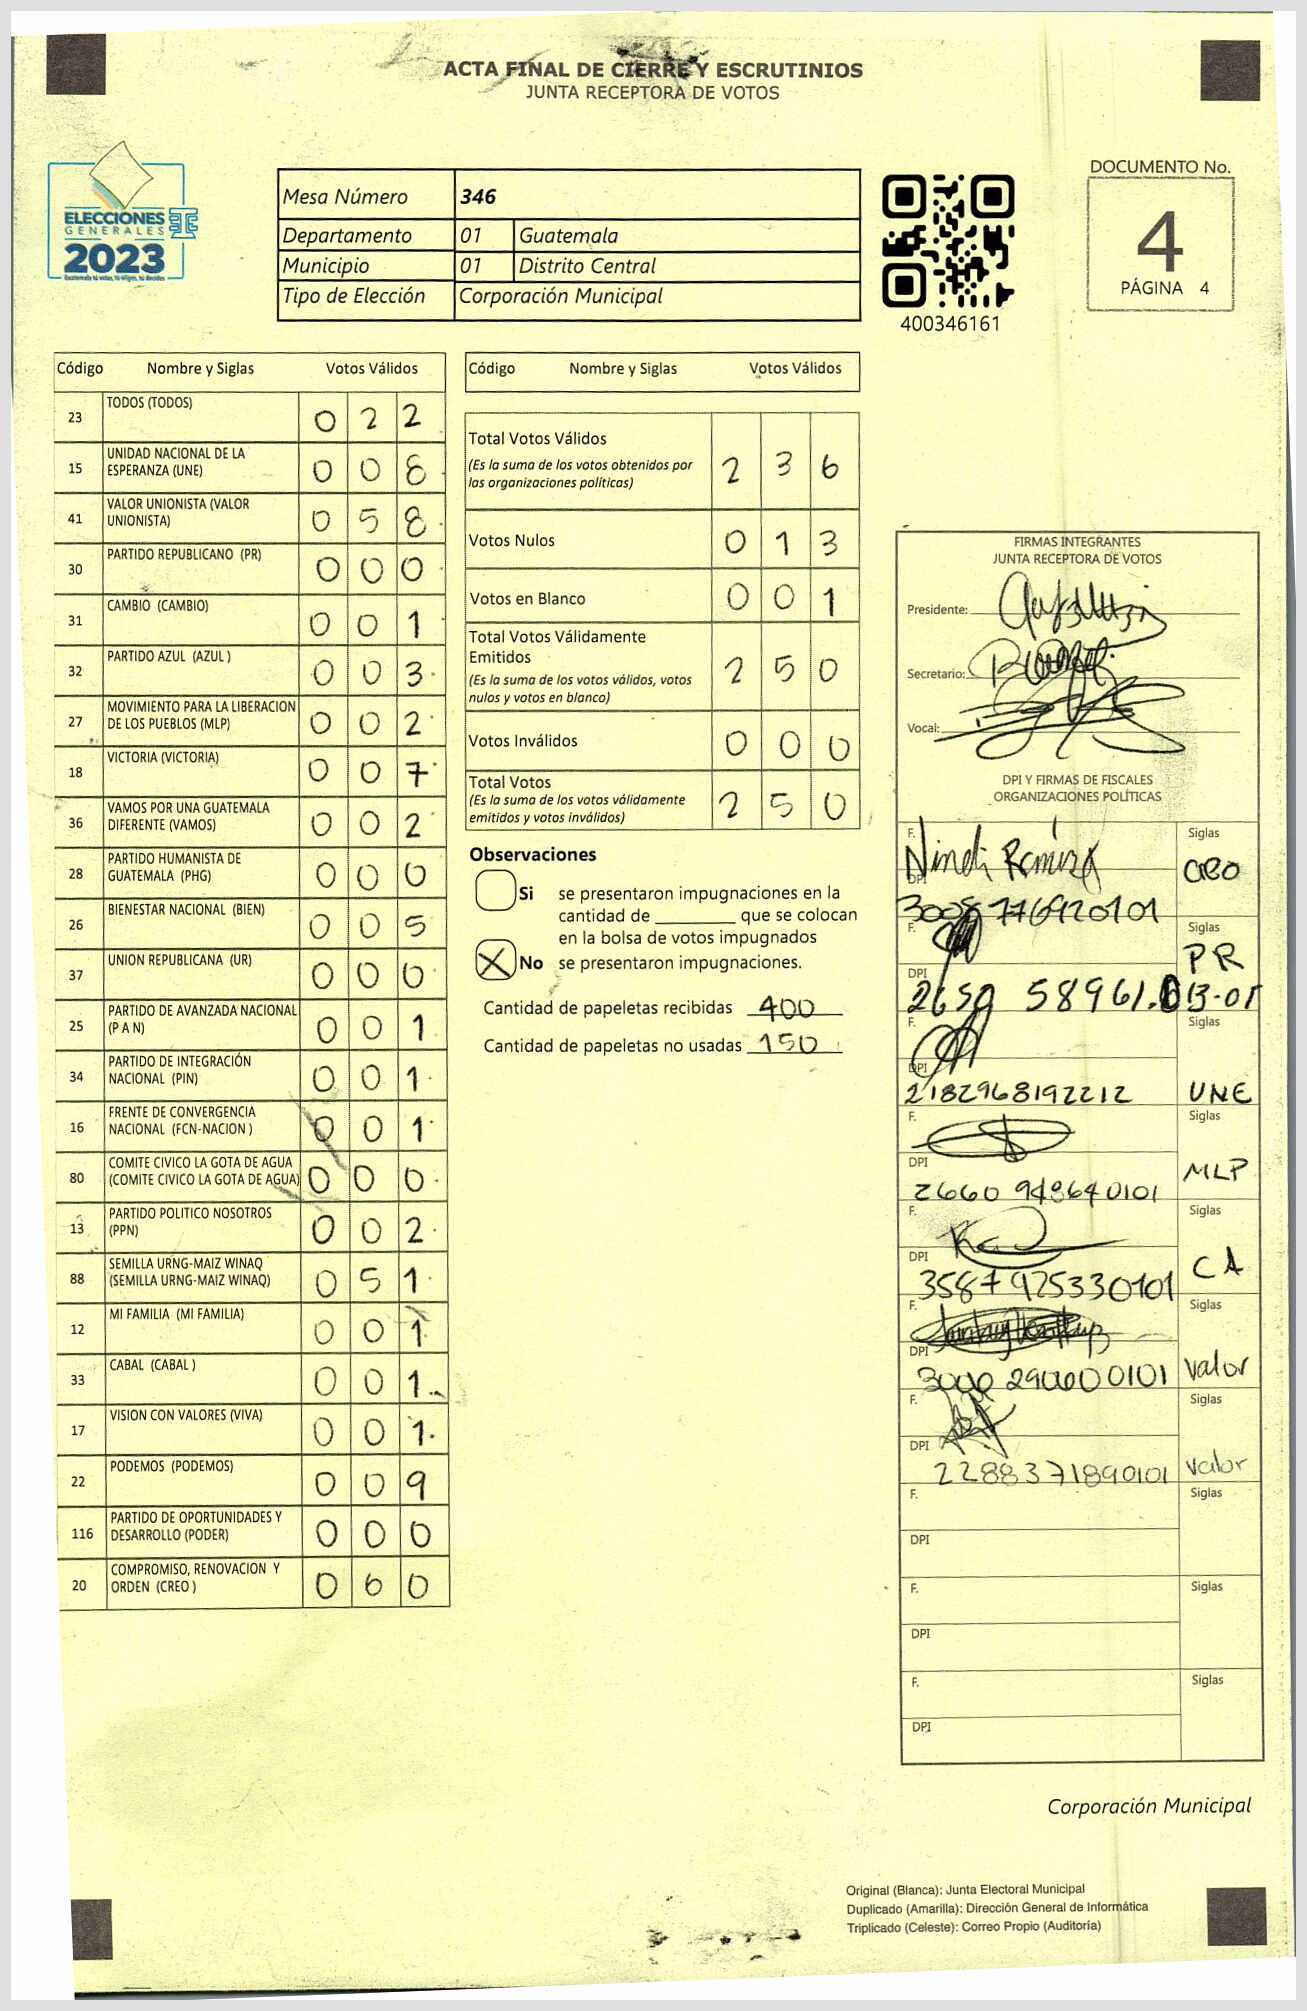 ACTA FINAL DE CIERRE Y ESCRUTINIOS
JUNTA RECEPTORA DE VOTOS
ELECCIONES
GENERALES
2023
Mesa Número 346
Departamento 01 Guatemala
Municipio 01 Distrito Central
Tipo de Elección Corporación Municipal
400346161
DOCUMENTO No.
4
PÁGINA 4
Código Nombre y Siglas Votos Válidos
23 TODOS (TODOS) 0 2 2
15 UNIDAD NACIONAL DE LA
ESPERANZA (UNE) 0 0 8
41 VALOR UNIONISTA (VALOR
UNIONISTA) 0 5 8
30 PARTIDO REPUBLICANO (PR) 0 0 0
31 CAMBIO (CAMBIO) 0 0 1
32 PARTIDO AZUL (AZUL ) 0 0 3
27 MOVIMIENTO PARA LA LIBERACION
DE LOS PUEBLOS (MLP) 0 0 2
18 VICTORIA (VICTORIA) 0 0 7
36 VAMOS POR UNA GUATEMALA
DIFERENTE (VAMOS) 0 0 2
28 PARTIDO HUMANISTA DE
GUATEMALA (PHG) 0 0 0
26 BIENESTAR NACIONAL (BIEN) 0 0 5
37 UNION REPUBLICANA (UR) 0 0 0
25 PARTIDO DE AVANZADA NACIONAL
(P A N) 0 0 1
34 PARTIDO DE INTEGRACIÓN
NACIONAL (PIN) 0 0 1
16 FRENTE DE CONVERGENCIA
NACIONAL (FCN-NACION ) 0 0 1
80 COMITE CIVICO LA GOTA DE AGUA
(COMITE CIVICO LA GOTA DE AGUA) 0 0 0
13 PARTIDO POLITICO NOSOTROS
(PPN) 0 0 2
88 SEMILLA URNG-MAIZ WINAQ
(SEMILLA URNG-MAIZ WINAQ) 0 5 1
12 MI FAMILIA (MI FAMILIA) 0 0 1
33 CABAL (CABAL ) 0 0 1
17 VISION CON VALORES (VIVA) 0 0 1
22 PODEMOS (PODEMOS) 0 0 9
116 PARTIDO DE OPORTUNIDADES Y
DESARROLLO (PODER) 0 0 0
20 COMPROMISO, RENOVACION Y
ORDEN (CREO ) 0 6 0
Código Nombre y Siglas Votos Válidos
Total Votos Válidos 2 3 6
(Es la suma de los votos obtenidos por
las organizaciones políticas)
Votos Nulos 0 1 3
Votos en Blanco 0 0 1
Total Votos Válidamente
Emitidos 2 5 0
(Es la suma de los votos válidos, votos
nulos y votos en blanco)
Votos Inválidos 0 0 0
Total Votos 2 5 0
(Es la suma de los votos válidamente
emitidos y votos inválidos)
Observaciones
Si se presentaron impugnaciones en la
cantidad de ________ que se colocan
en la bolsa de votos impugnados
X No se presentaron impugnaciones.
Cantidad de papeletas recibidas 400
Cantidad de papeletas no usadas 150
FIRMAS INTEGRANTES
JUNTA RECEPTORA DE VOTOS
Presidente:
Secretario:
Vocal:
DPI Y FIRMAS DE FISCALES
ORGANIZACIONES POLÍTICAS
F. Siglas
DPI
F. Siglas
PR
DPI
F. Siglas
DPI
2182968192212 UNE
F. Siglas
DPI MLP
2660 948640101
F. Siglas
DPI CA
3587 925330101
F. Siglas
DPI
Valor
F. Siglas
DPI
2288371890101 Valor
F. Siglas
DPI
F. Siglas
DPI
F. Siglas
DPI
Corporación Municipal
Original (Blanca): Junta Electoral Municipal
Duplicado (Amarilla): Dirección General de Informática
Triplicado (Celeste): Correo Propio (Auditoría)